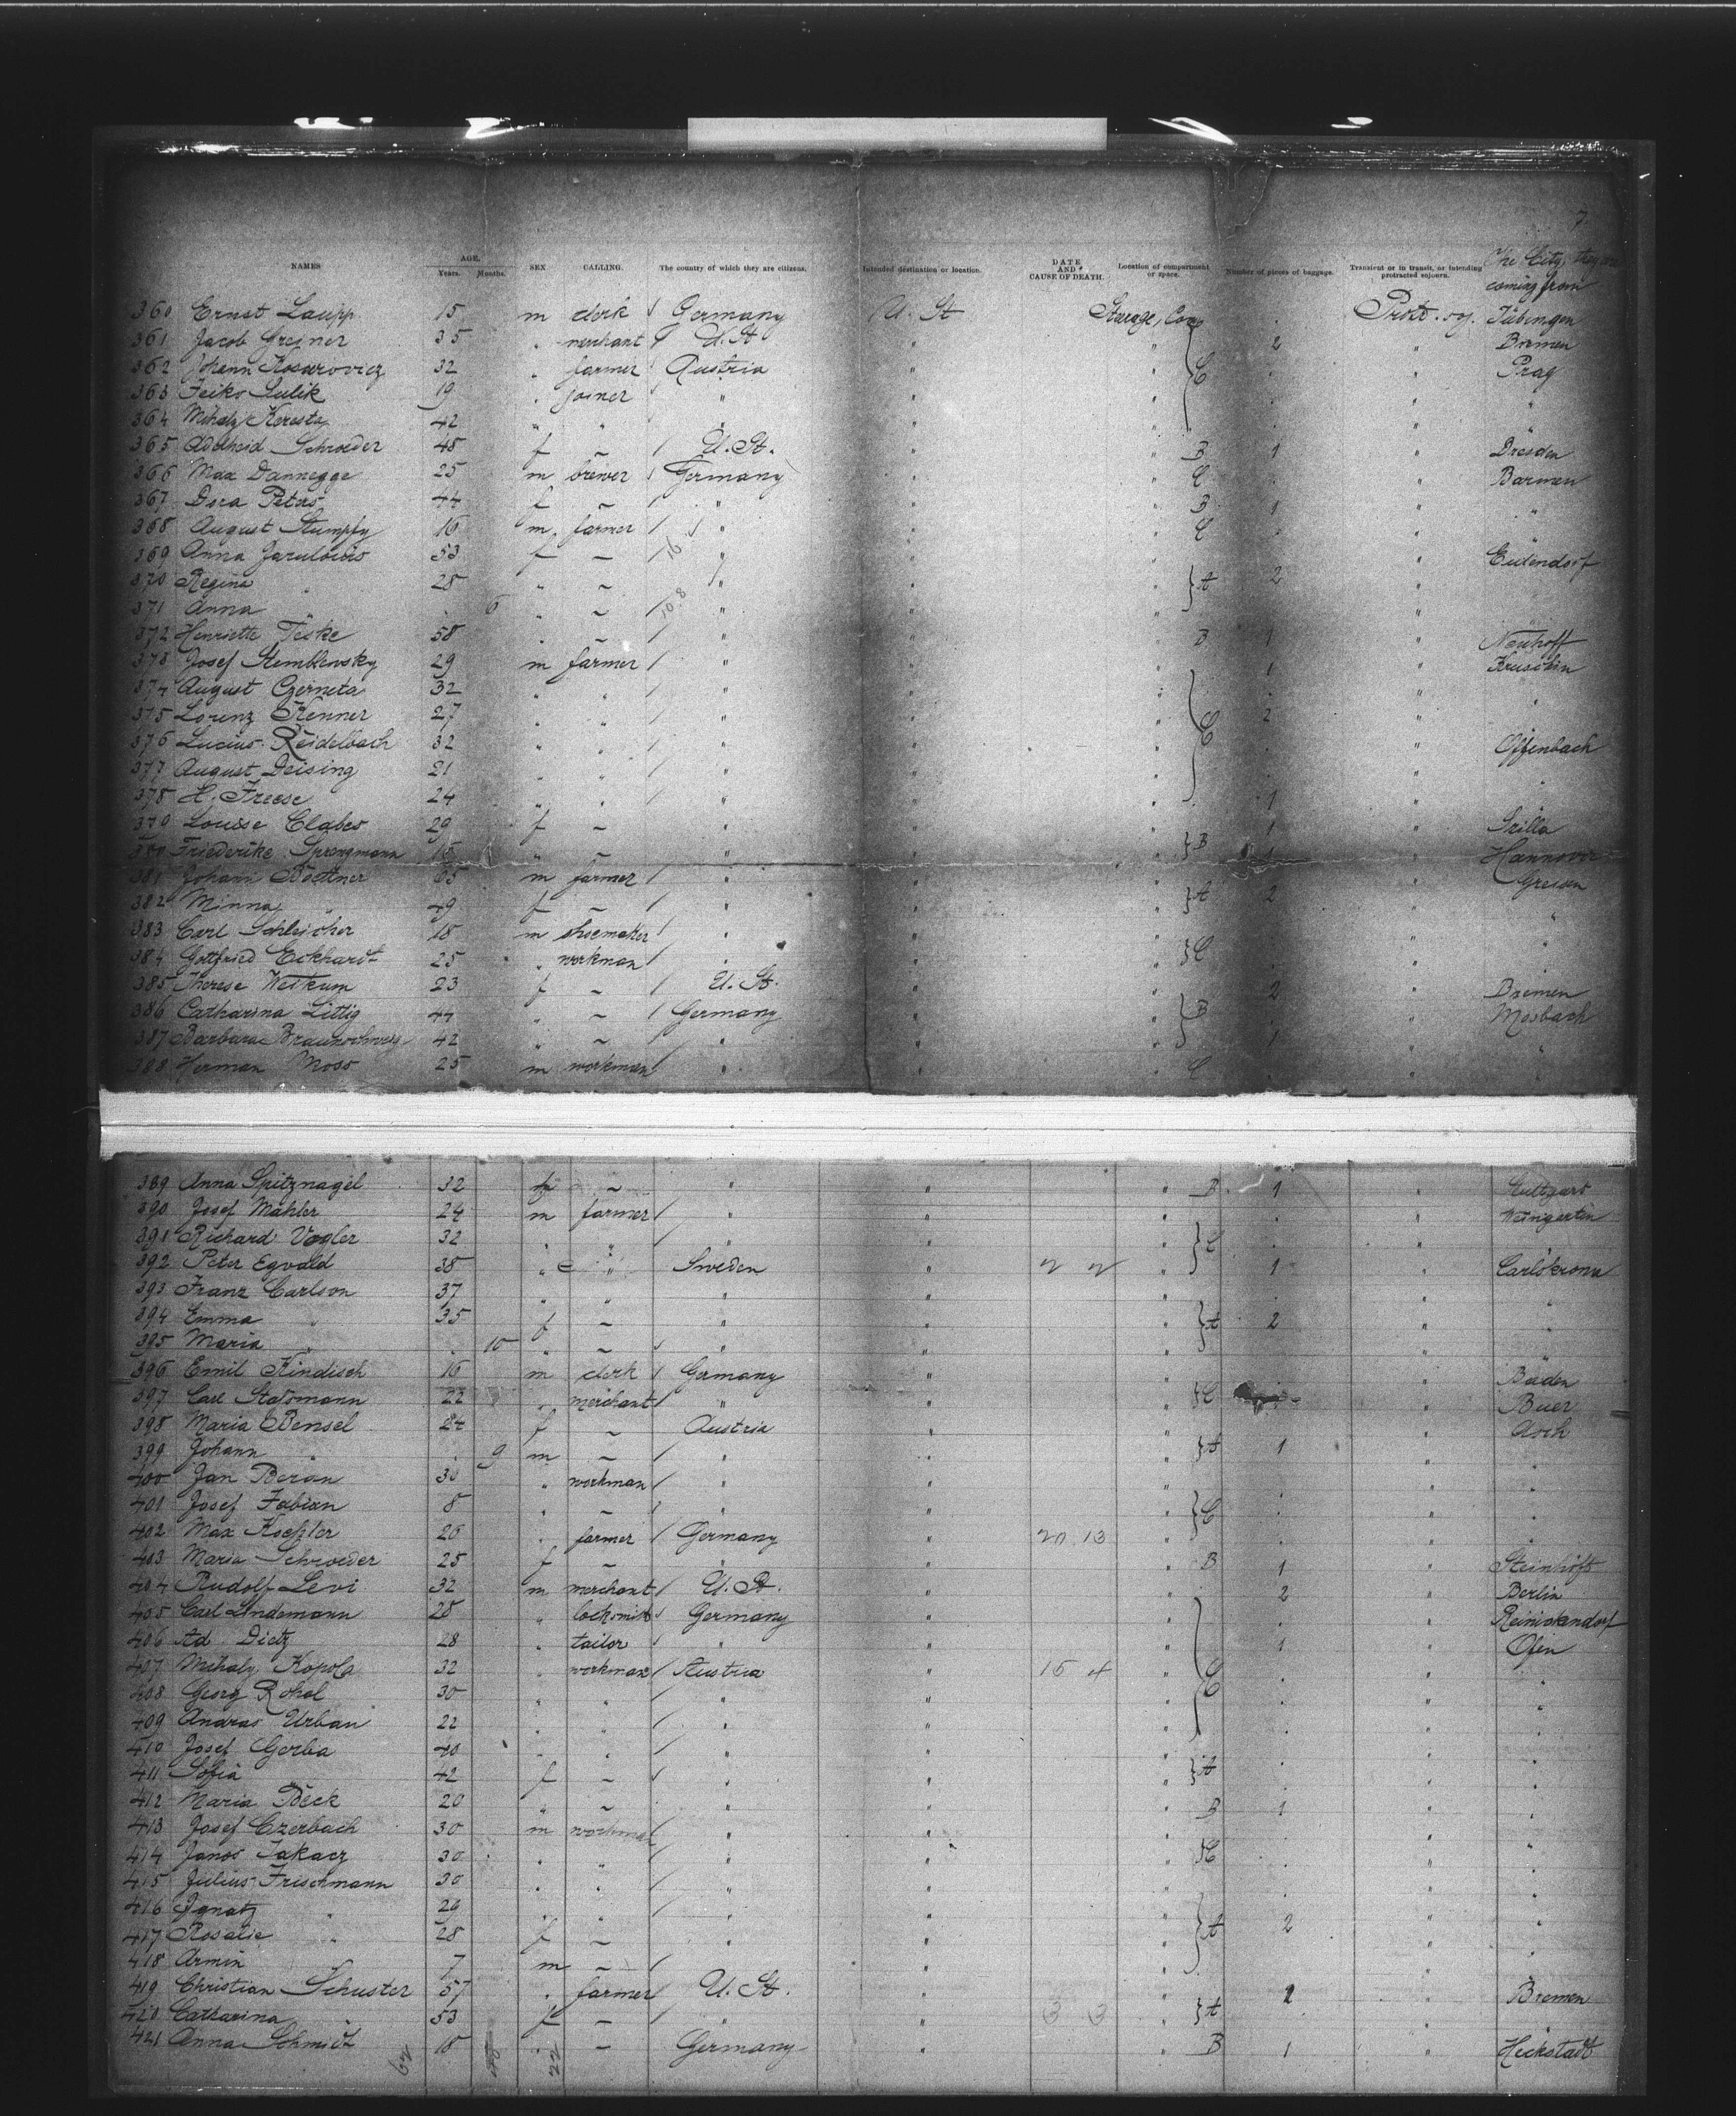 7
NAMES AGE. Years. Months. SEX CALLING. The country of which they are citizens. Intended destination or location. DATE AND CAUSE OF DEATH. Location of compartment or space. Number of pieces of baggage. Transient or in transit, or intending protracted sojourn. The City, they are coming from
360 Ernst Laupp 15 m clerk / Germany U. St Steerage, Prot. soj. Tübingen
361 Jacob Greiner 35 " merchant U. St " " 2 " Bremen
362 Johann Kosarovicz 32 " farmer Austria " " C " Prag
363 Feiko Sulik 19 " joiner / " " " " "
364 Mihaly Keresty 42 " " " " "
365 Adelheid Schroeder 48 f — / U. St. " " B 1 " Dresden
366 Max Dannegge 25 m brewer / Germany " " C " Barmen
367 Dora Peters 44 f — / " " " B 1 " "
368 August Stumpfy 16 m. farmer / " " " C "
369 Anna 53 f — / " " " " Eudendorf
370 Regina " 28 " — " " " } A 2 " "
371 Anna " 6 " — / " " " " "
372 Henriette Teske 58 " — / " " " B 1 " Neuhoff
373 Josef Stemblewsky 29 m farmer / " " " 1 " Kruschin
374 August Czerneta 32 " " / " " " " "
375 Lorenz Kenner 27 " " / " " " C 2 " "
376 Lucius Reidelbach 32 " " / " " " " Offenbach
377 August Deising 21 " " / " " " " "
378 H. Freese 24 " " / " " " 1 " "
379 Louise Clabes 29 f — " " " 1 "
380 Friederike Sprengmann 18 " — " " " } B 1 " Hannover
381 Johann Boettner 65 m farmer / " " " " Gresen
382 Minna " 49 f — / " " " } A 2 " "
383 Carl Schleicher 18 m shoemaker / " " " " "
384 Gottfried Eckhardt 25 " workman / " " " } C " "
385 Therese Weikum 23 f — / U. St. " " 2 " Bremen
386 Catharina Littig 44 " — / Germany " " } B " Mosbach
387 Barbara Braunschweig 42 " — / " " " 1 " "
388 Herman Moss 25 m workman / " " " C " "
389 Anna Spitznagel 32 f — " " " B 1 " Stuttgart
390 Josef Mahler 24 m farmer / " " " " Weingarten
391 Richard Vogler 32 " " / " " " } C "
392 Peter Egvald 38 " " Sweden " " 1 " Carlskrona
393 Franz Carlson 37 " " " " " " "
394 Emma " 35 f — " " " } A 2 " "
395 Maria " 10 " — / " " " " "
396 Emil Kindisch 16 m clerk / Germany " " " Baden
397 Carl Statsmann 22 " merchant / " " " } C " Buer
398 Maria Bensel 24 f — Austria " " " Asch
399 Johann " 9 m — / " " " } A 1 " "
400 Jan Beran 30 " workman / " " " " "
401 Josef Fabian 8 " — / " " " } C " "
402 Max Koehler 26 " farmer / Germany " 20 13 " " "
403 Maria Schroeder 25 f — " " " B 1 " Steinhöft
404 Rudolf Levi 32 m merchant / U. St. " " 2 " Berlin
405 Carl Lindemann 28 " locksmith Germany " " " Reinickendorf
406 Ad. Dietz 28 " tailor " " " 1 " Ofen
407 Mihaly Kopola 32 " workman / Austria " 15 4 " C " "
408 Georg Rohal 30 " " / " " " " "
409 Andras Urban 22 " " / " " " " "
410 Josef Gerba 40 " " / " " " " "
411 Sofia " 42 f — " " " } A " "
412 Maria Beck 20 " — " " " B 1 " "
413 Josef Czerbach 30 m workman " " " " "
414 Janos Takacz 30 " " / " " " } C " "
415 Julius Frischmann 30 " " / " " " " "
416 Ignatz " 29 " " / " " " " "
417 Rosalie " 28 f — " " " } A 2 " "
418 Armin " 7 m — / " " " " "
419 Christian Schuster 57 " farmer / U. St. " " 2 " Bremen
420 Catharina " 53 f — / " " 3 3 " } A " "
421 Anna Schmidt 18 " — Germany " " B 1 " Heckstadt
62 22